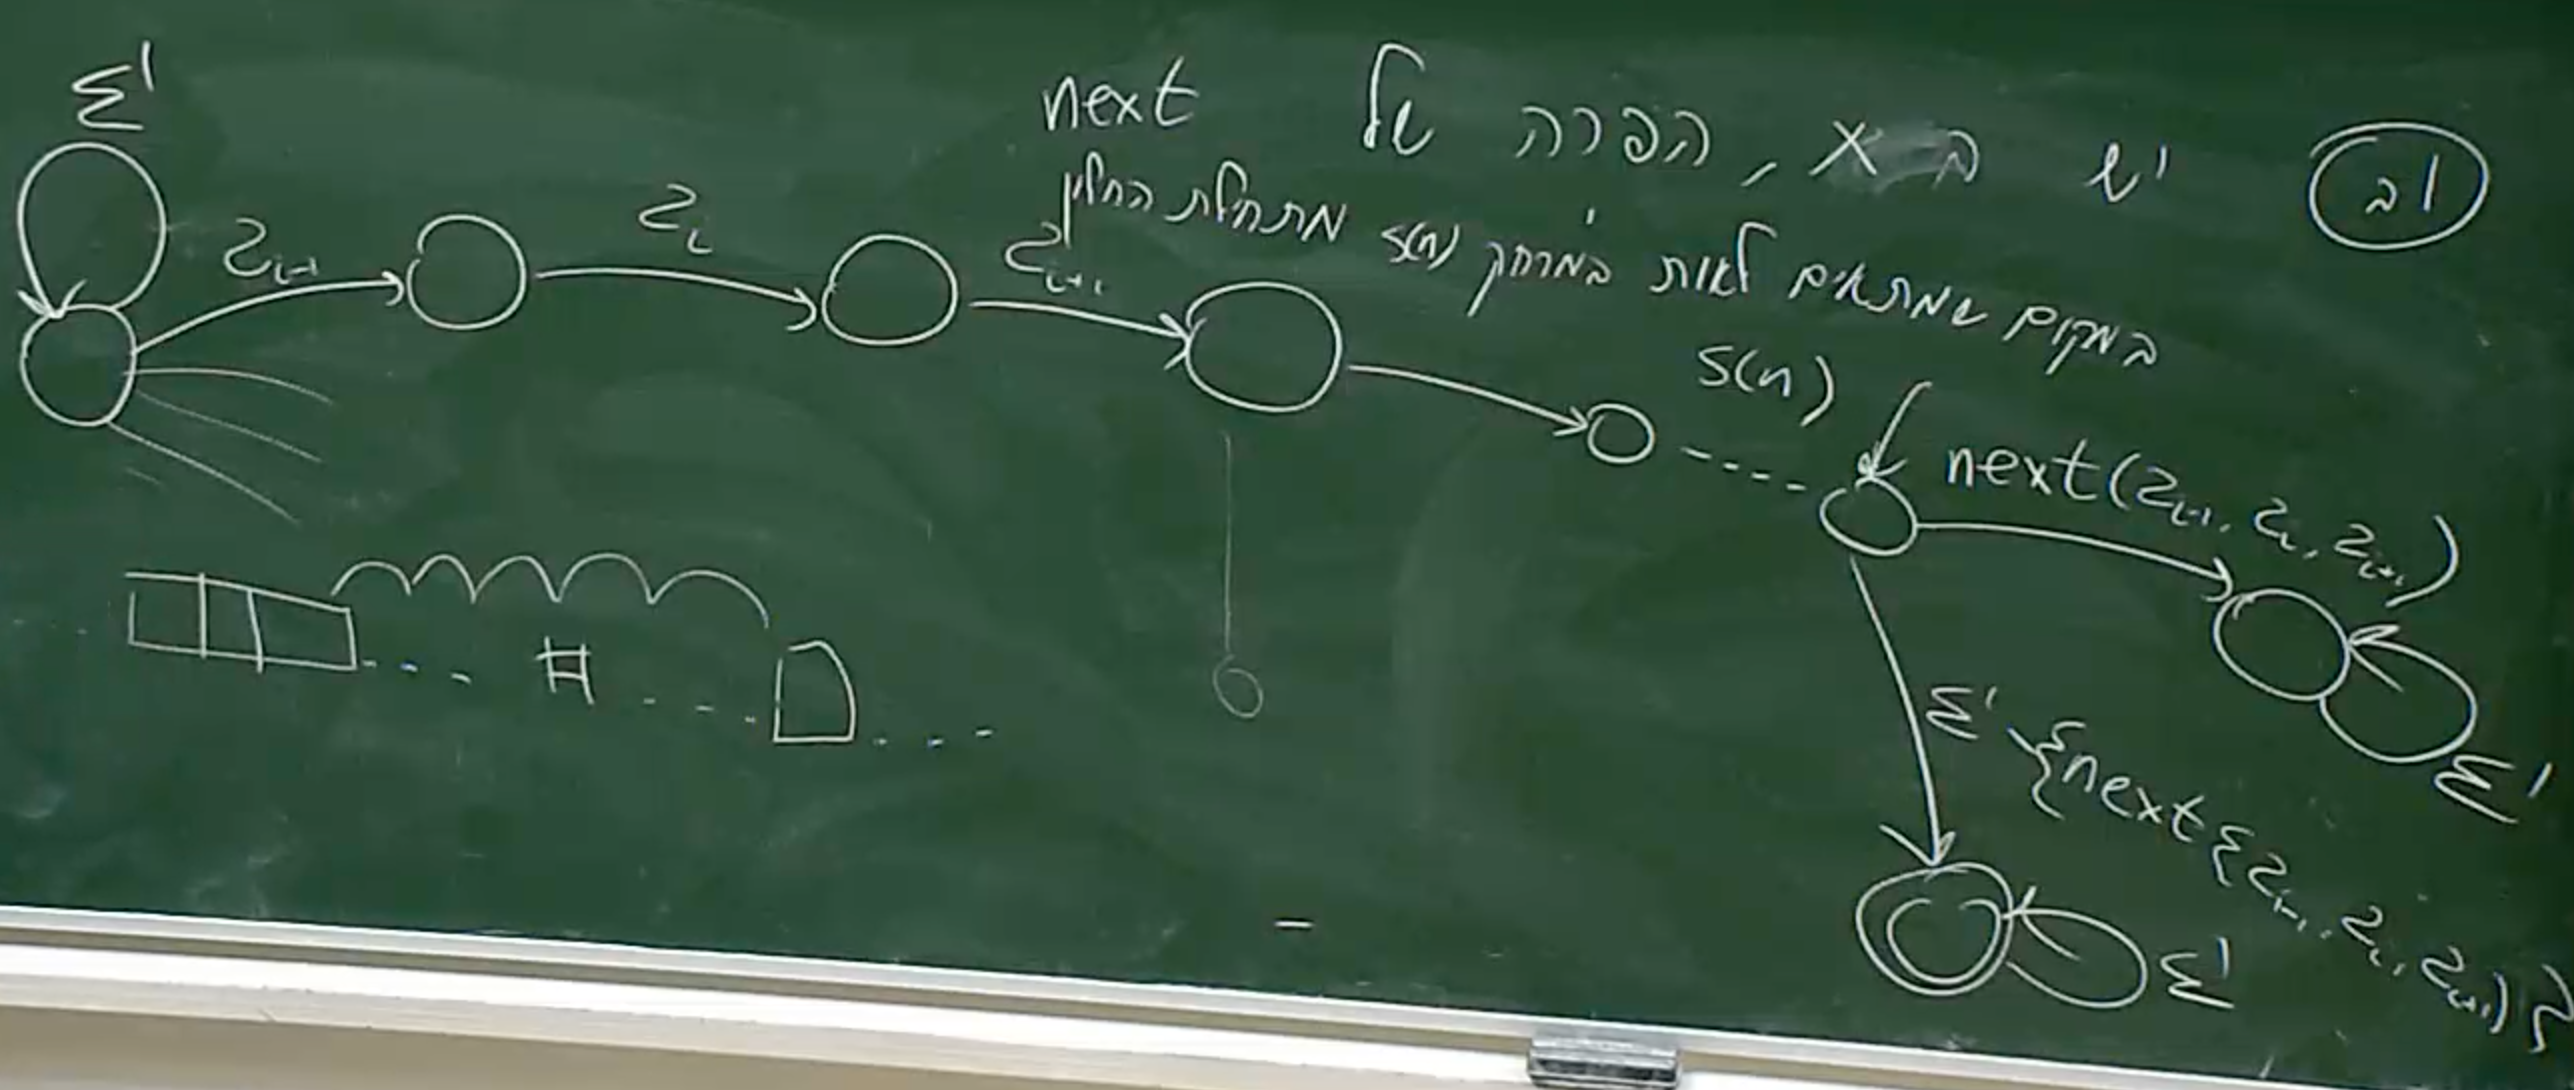 1ב יש ב x, הפרה של next
במקום שמתאים לאות במרחק s(n) מתחילת החלון
Σ'
σᵢ₋₁
σᵢ
σᵢ₊₁
s(n)
next(σᵢ₋₁, σᵢ, σᵢ₊₁)
Σ'
Σ' \ {next{σᵢ₋₁, σᵢ, σᵢ₊₁)}
Σ'
#